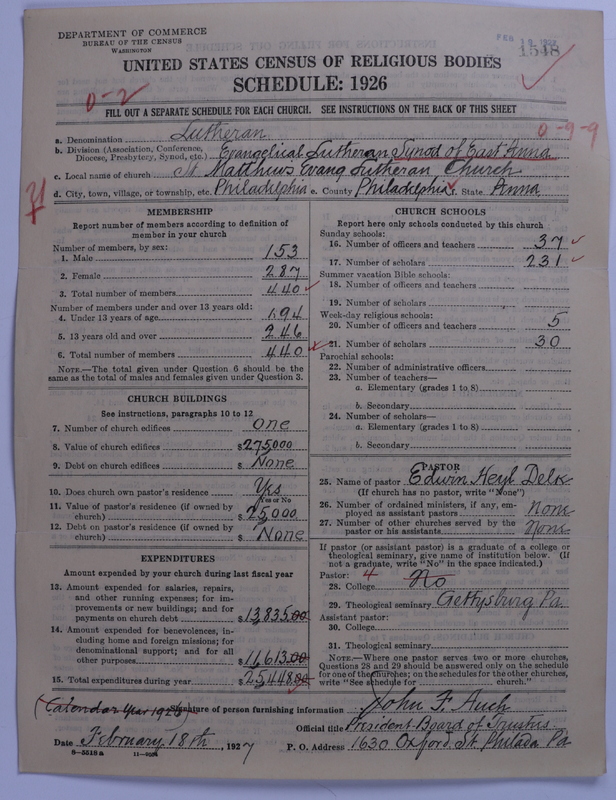 DEPARTMENT OF COMMERCE
BUREAU OF THE CENSUS
WASHINGTON
FEB 19 1927
1548
UNITED STATES CENSUS OF RELIGIOUS BODIES
SCHEDULE: 1926
0-2
FILL OUT A SEPARATE SCHEDULE FOR EACH CHURCH. SEE INSTRUCTIONS ON THE BACK OF THIS SHEET
0-9-9
a. Denomination Lutheran
b. Division (Association, Conference, Diocese, Presbytery, Synod, etc.) Evangelical Lutheran Synod of East Penna
c. Local name of church St. Matthews Evang Lutheran Church
d. City, town, village, or township, etc. Philadelphia e. County Philadelphia f. State Penna
MEMBERSHIP
Report number of members according to definition of
member in your church
Number of members, by sex:
1. Male 153
2. Female 287
3. Total number of members 440
Number of members under and over 13 years old:
4. Under 13 years of age 194
5. 13 years old and over 246
6. Total number of members 440
NOTE.—The total given under Question 6 should be
same as the total of males and females given under Question 3.
CHURCH BUILDINGS
See instructions, paragraphs 10 to 12
7. Number of church edifices One
8. Value of church edifices $275,000
9. Debt on church edifices $ None
10. Does church own pastor's residence Yes
Yes or No
11. Value of pastor's residence (if owned by
church) $25,000
12. Debt on pastor's residence (if owned by
church) $ None
EXPENDITURES
Amount expended by your church during last fiscal year
13. Amount expended for salaries, repairs,
and other running expenses; for im-
provements or new buildings; and for
payments on church debt $13,835.00
14. Amount expended for benevolences, in-
cluding home and foreign missions; for
denominational support; and for all
other purposes $11,613.00
15. Total expenditures during year $25,448.00
CHURCH SCHOOLS
Report here only schools conducted by this church
Sunday schools:
16. Number of officers and teachers 37
17. Number of scholars 231
Summer vacation Bible schools:
18. Number of officers and teachers
19. Number of scholars
Week-day religious schools:
20. Number of officers and teachers 5
21. Number of scholars 30
Parochial schools:
22. Number of administrative officers
23. Number of teachers—
a. Elementary (grades 1 to 8)
b. Secondary
24. Number of scholars—
a. Elementary (grades 1 to 8)
b. Secondary
PASTOR
25. Name of pastor Edwin Heyl Delk
(If church has no pastor, write "None")
26. Number of ordained ministers, if any, em-
ployed as assistant pastors None
27. Number of other churches served by the
pastor or his assistants None
If pastor (or assistant pastor) is a graduate of a college or
theological seminary, give name of institution below. (If
not a graduate, write "No" in the space indicated.)
Pastor: 4
28. College No
29. Theological seminary Gettysburg Pa.
Assistant pastor:
30. College
31. Theological seminary
NOTE.—Where one pastor serves two or more churches,
Questions 28 and 29 should be answered only on the schedule
for one of the churches; on the schedules for the other churches,
write "See schedule for church."
(Calendar Year 1926) Signature of person furnishing information John F. Auch
Official title President Board of Trustees
Date February 18th, 1927 P. O. Address 1630 Oxford St. Philada Pa
8—5518a 11—9034